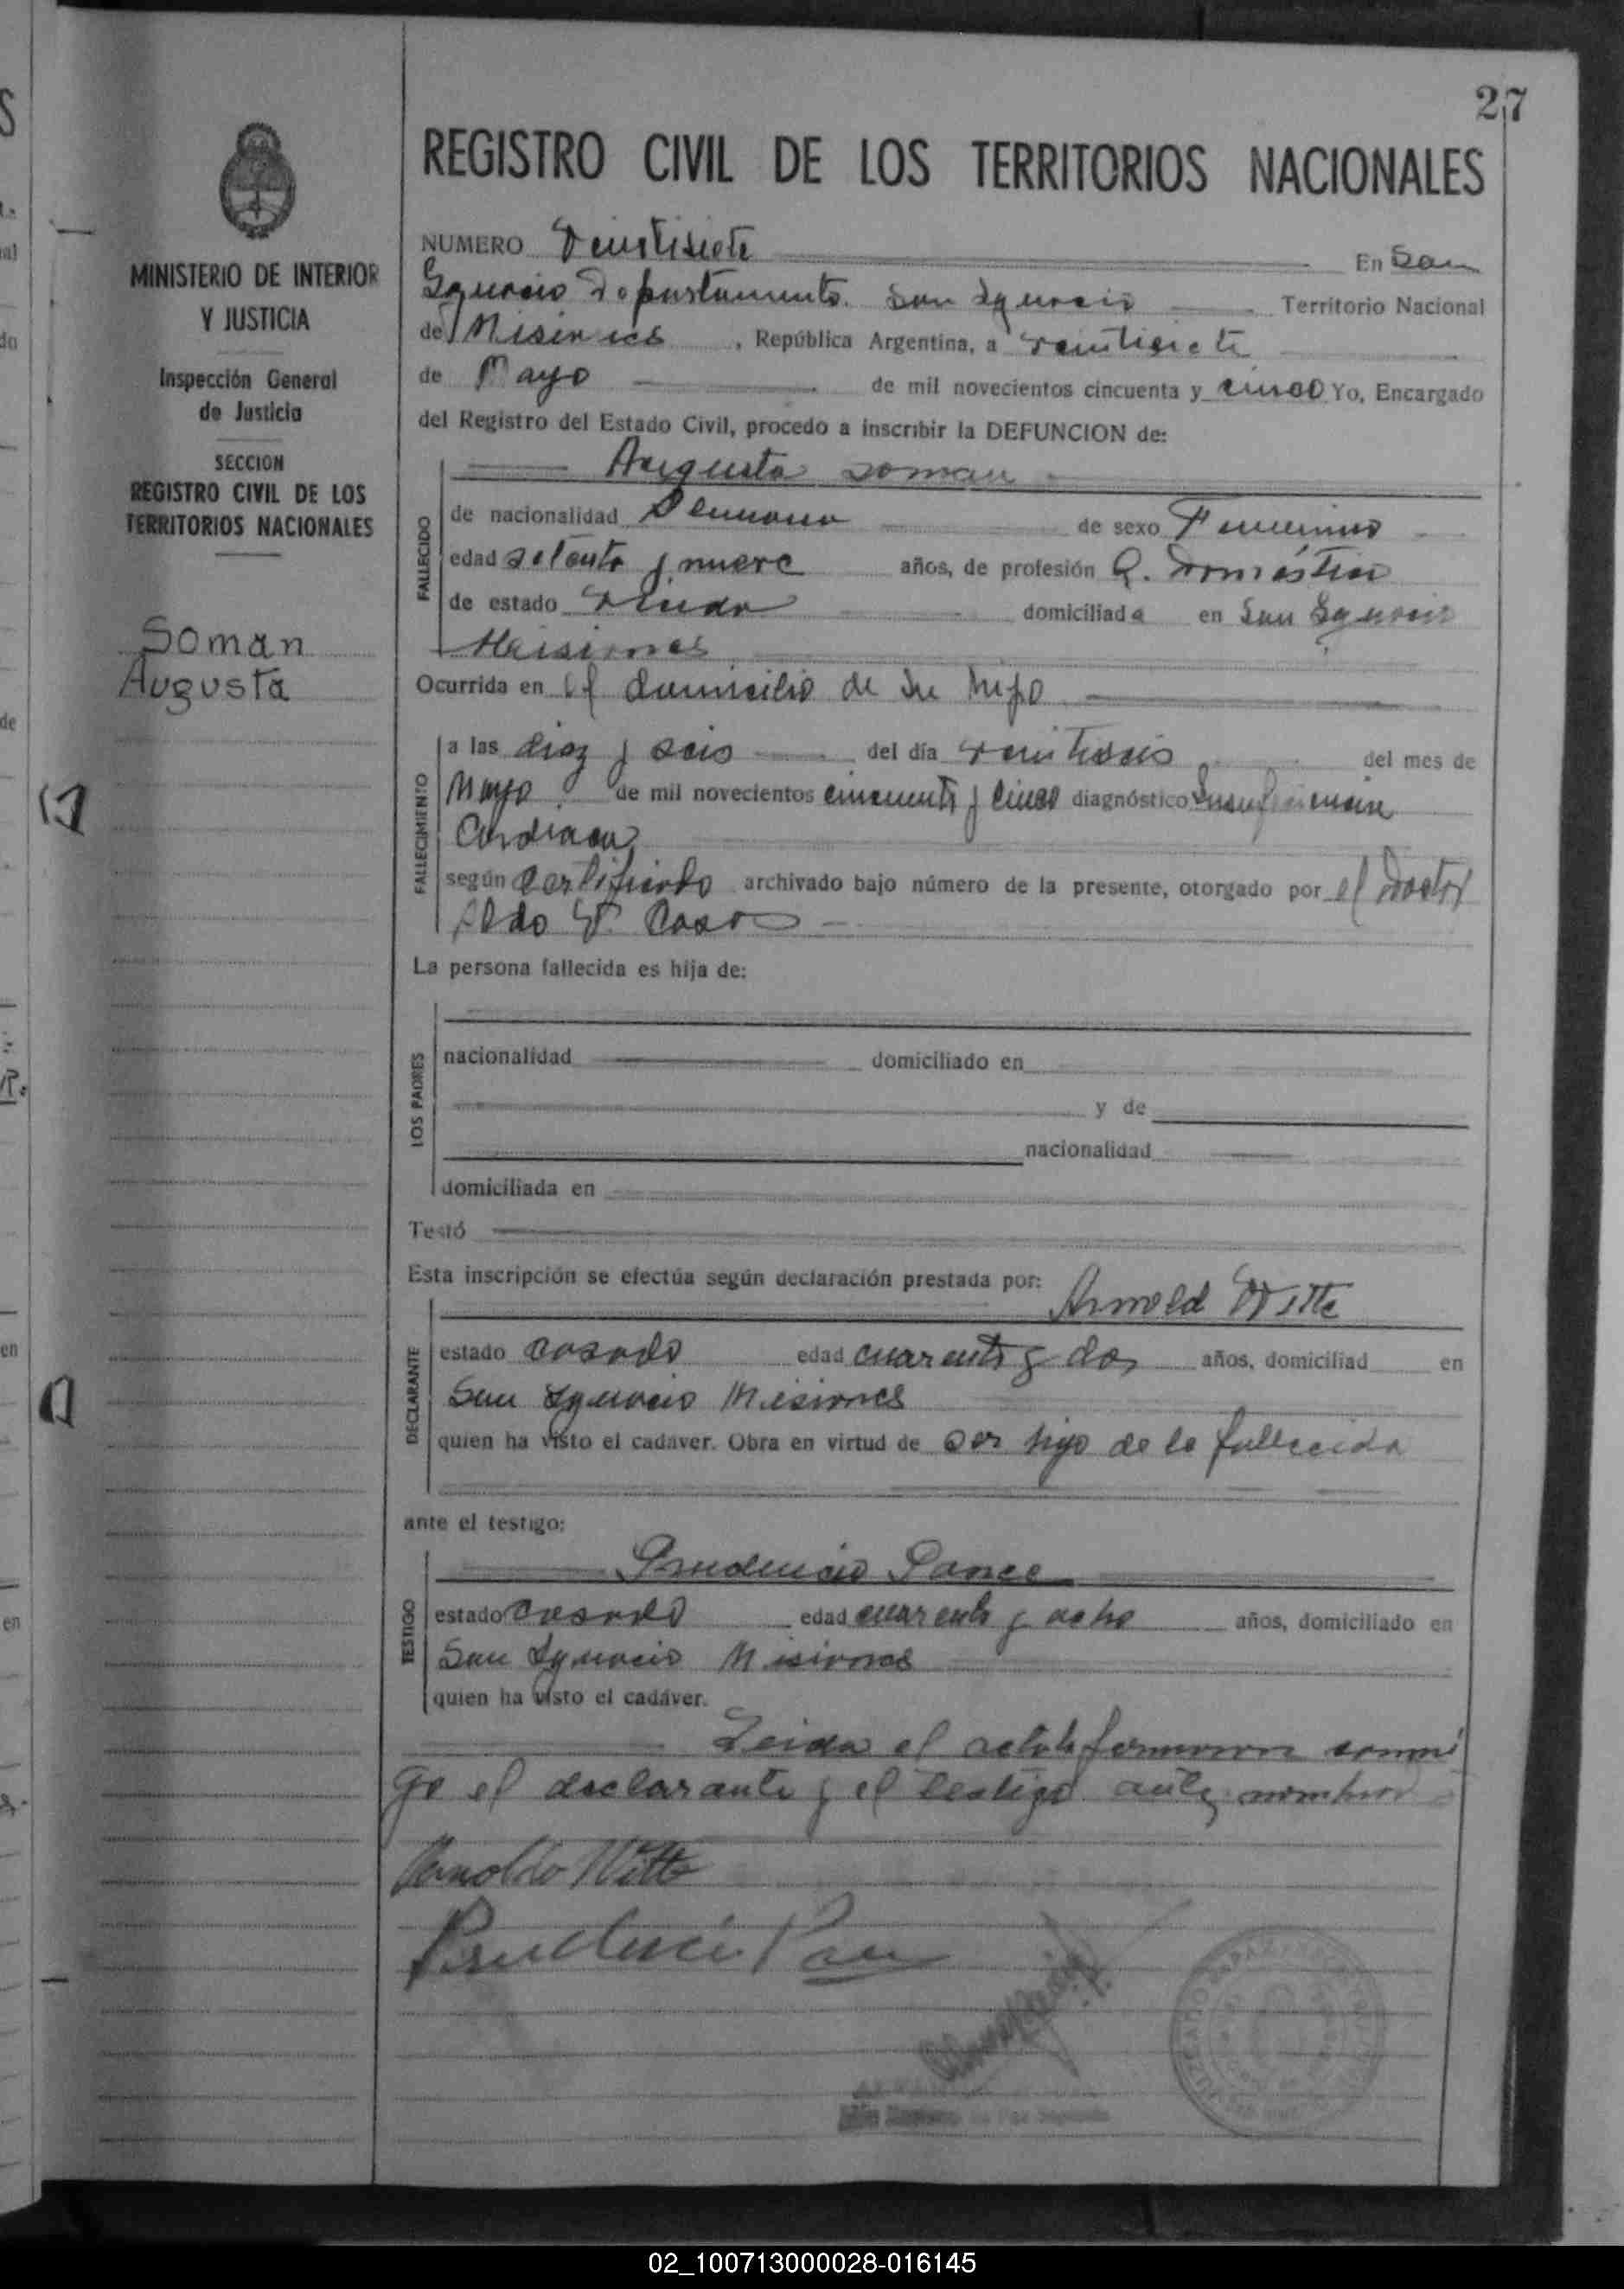 27
REGISTRO CIVIL DE LOS TERRITORIOS NACIONALES
MINISTERIO DE INTERIOR
Y JUSTICIA
Inspección General
de Justicia
SECCION
REGISTRO CIVIL DE LOS
TERRITORIOS NACIONALES
Soman
Augusta
NUMERO Veintisiete En San
Ignacio Departamento San Ignacio Territorio Nacional
de Misiones, República Argentina, a veintisiete
de Mayo de mil novecientos cincuenta y cinco Yo, Encargado
del Registro del Estado Civil, procedo a inscribir la DEFUNCION de:
Augusta Soman
FALLECIDO
de nacionalidad Alemana de sexo Femenino
edad setenta y nueve años, de profesión Q. Doméstico
de estado Viuda domiciliada en San Ignacio
Misiones
Ocurrida en el domicilio de su hijo
FALLECIMIENTO
a las diez y seis del día veintiseis del mes de
Mayo de mil novecientos cincuenta y cinco diagnóstico Insuficiencia
Cardiaca
según certificado archivado bajo número de la presente, otorgado por el Doctor
Aldo
La persona fallecida es hija de:
LOS PADRES
nacionalidad domiciliado en
y de
nacionalidad
domiciliada en
Testó
Esta inscripción se efectúa según declaración prestada por:
Arnold Witte
DECLARANTE
estado casado edad cuarenta y dos años, domiciliad en
San Ignacio Misiones
quien ha visto el cadáver. Obra en virtud de ser hijo de la fallecida
ante el testigo:
Prudencio Ponce
TESTIGO
estado casado edad cuarenta y ocho años, domiciliado en
San Ignacio Misiones
quien ha visto el cadáver.
Leida el acta la firmaron conmi
go el declarante y el testigo antes nombrado
Arnoldo Witte
02_100713000028-016145